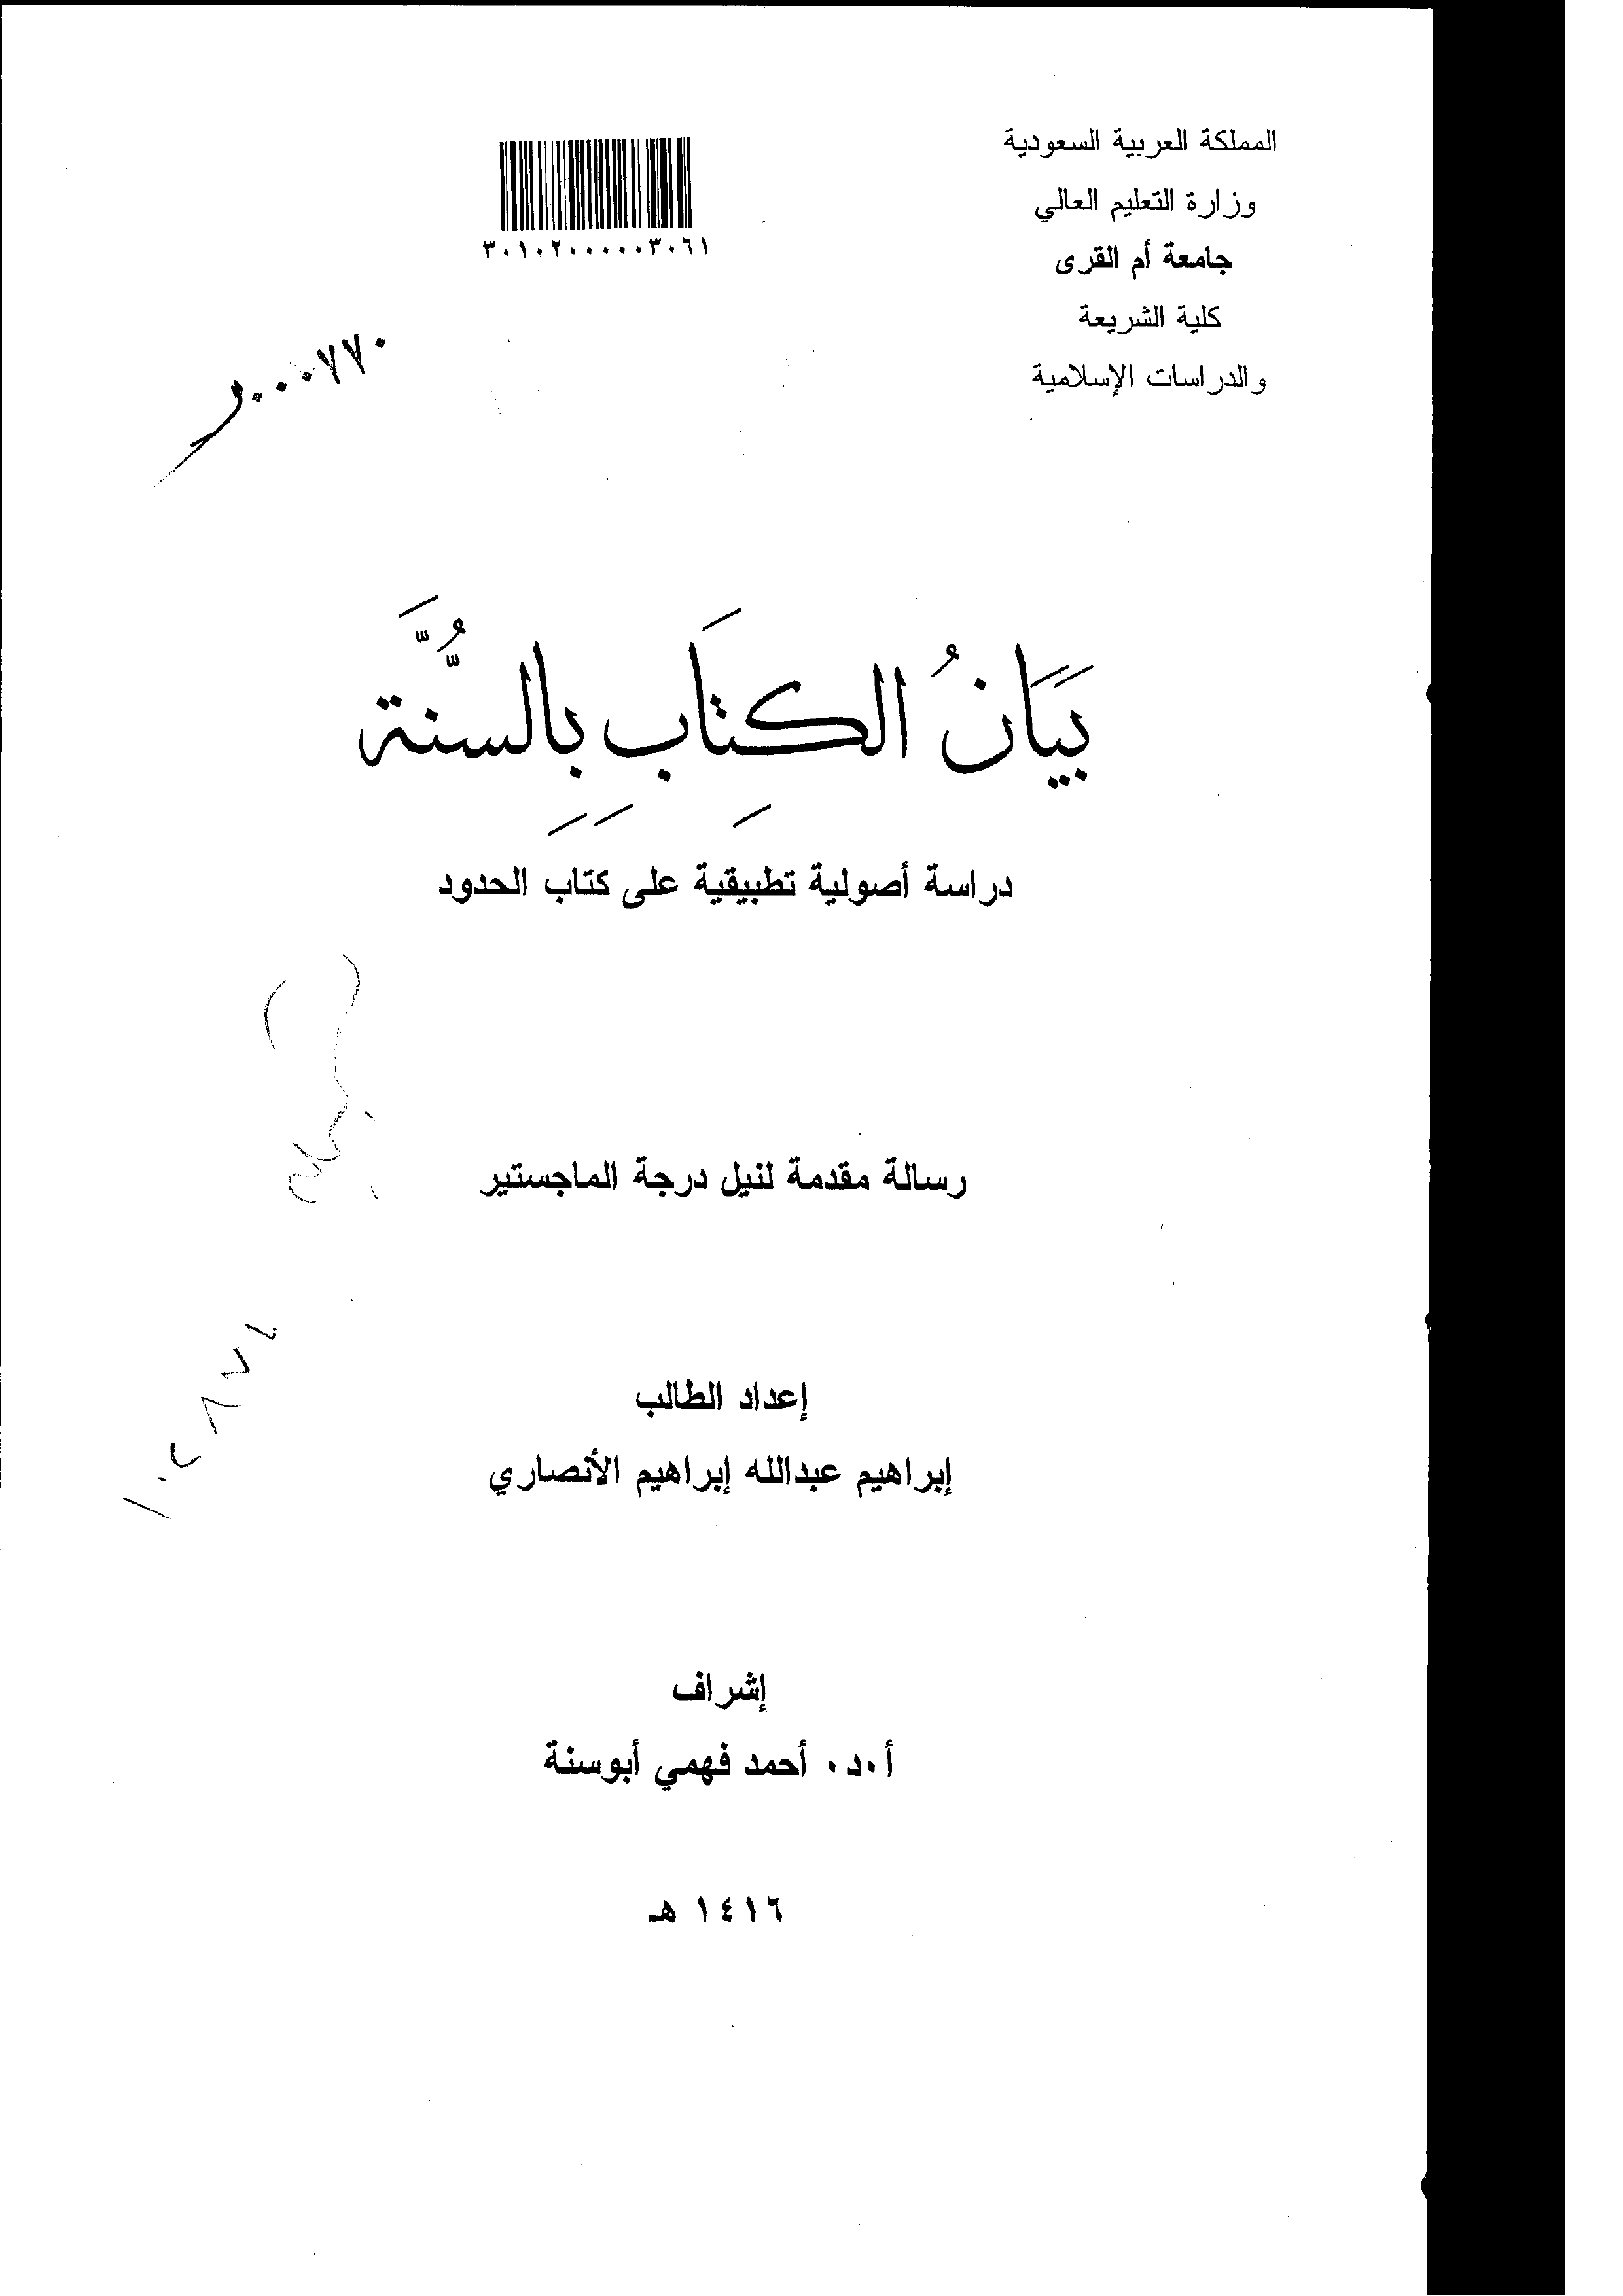 المملكة العربية السعودية
وزارة التعليم العالي
جامعة أم القرى
كلية الشريعة
والدراسات الإسلامية
٣٠١٠٢٠٠٠٠٠٣٠٦١
بَيَانُ الكِتَابِ بِالسُّنَّةِ
دراسة أصولية تطبيقية على كتاب الحدود
رسالة مقدمة لنيل درجة الماجستير
إعداد الطالب
إبراهيم عبدالله إبراهيم الأنصاري
إشراف
أ.د. أحمد فهمي أبوسنة
١٤١٦ هـ